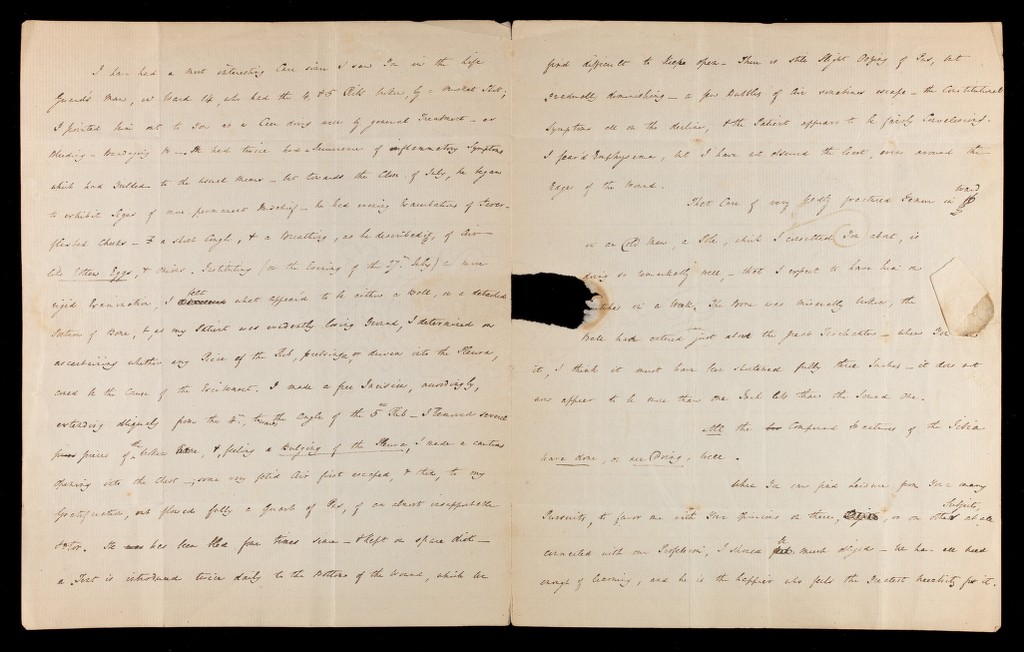 I have had a most interesting Case since I saw You in the Life
Guard's Man, in Ward 14, who had the 4 & 5 Rib broken, by a Musket Shot;
I pointed him out to You as a Case doing well by general Treatment - as
Bleeding - Bandaging &c - He had twice had a recurrence of inflammatory Symptoms
which had yielded to the usual Means - but towards the Close of July, he began
to exhibit Signs of more permanent Mischief - he had evening Exacerbations of Fever -
flushed Cheeks - a short Cough, & a Breathing, as he described it, of Air
like rotten Eggs, & onions. Instituting (on the Evening of the 27th July) a more
rigid Examination I felt what appear'd to be either a Ball, or a detached
Portion of Bone, & as my Patient was evidently losing Ground, I determined on
ascertaining whether any Piece of the Rib, pressing on, or driven into the Pleura,
could be the Cause of the Excitement. I made a free Incision, accordingly,
extending obliquely from the 4th, towards the Angle of the 5th Rib - I removed several
pieces of the broken Bone, &, feeling a Bulging of the Pleura, I made a cautious
opening into the Chest -; some very fetid Air first escaped, & then, to my
Gratification, out flowed fully a Quart of Pus, of an almost insupportable
Odor. He has been bled four times since - & kept on spare diet -
a Tent is introduced twice daily to the Bottom of the Wound, which we
find difficult to keep open - There is still slight Oozing of Pus, but
gradually diminishing - a few Bubbles of Air sometimes escape - the Constitutional
Symptoms all on the decline, & the Patient appears to be fairly Convalescing.
I fear'd Emphysema, but I have not observed the least, even around the
Edges of the Wound.
That Case of very badly fractured Femur in Ward
in an Old Man, a Pole, which I consulted You about, is
doing so remarkably well, - that I expect to have him on
in a Week. The Bone was miserably broken, the
Ball had entered just above the great Trochanter - where You
it, I think it must have been shortened fully three Inches - it does not
now appear to be more than one Inch less than the Sound One.
All the Compound Fractures of the Tibia
have done, or are Doing, well.
When You can find Leisure from Your many
Pursuits, to favor me with Your Opinions on these, or on other Subjects, at all
connected with our Profession, I should be much obliged - We have all need
enough of learning, and he is the happier who feels the Greatest Necessity for it.